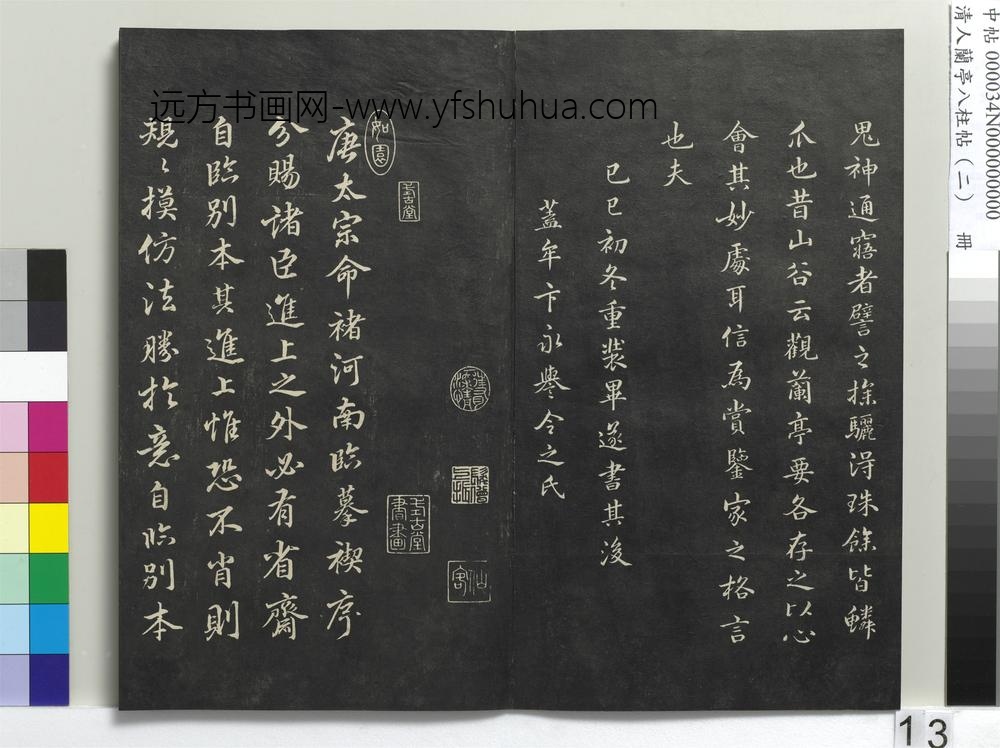 中帖 000034N000000000
清人蘭亭八柱帖(二) 冊
远方书画网-www.yfshuhua.com
鬼神通寤者譬之探驪淂珠餘皆鱗
爪也昔山谷云觀蘭亭要各存之以心
會其妙處耳信為賞鑒家之格言
也夫
己巳初冬重裝畢遂書其後
蓋牟卞永譽令之氏
如園
唐太宗命褚河南臨摹禊序
分賜諸臣進上之外必有省齋
自臨別本其進上惟恐不肖則
規〻摸仿法勝於意自臨別本
13